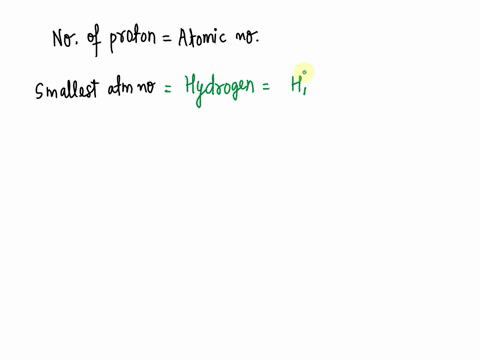 No. of proton = Atomic no.
Smallest atm no = Hydrogen = H₁